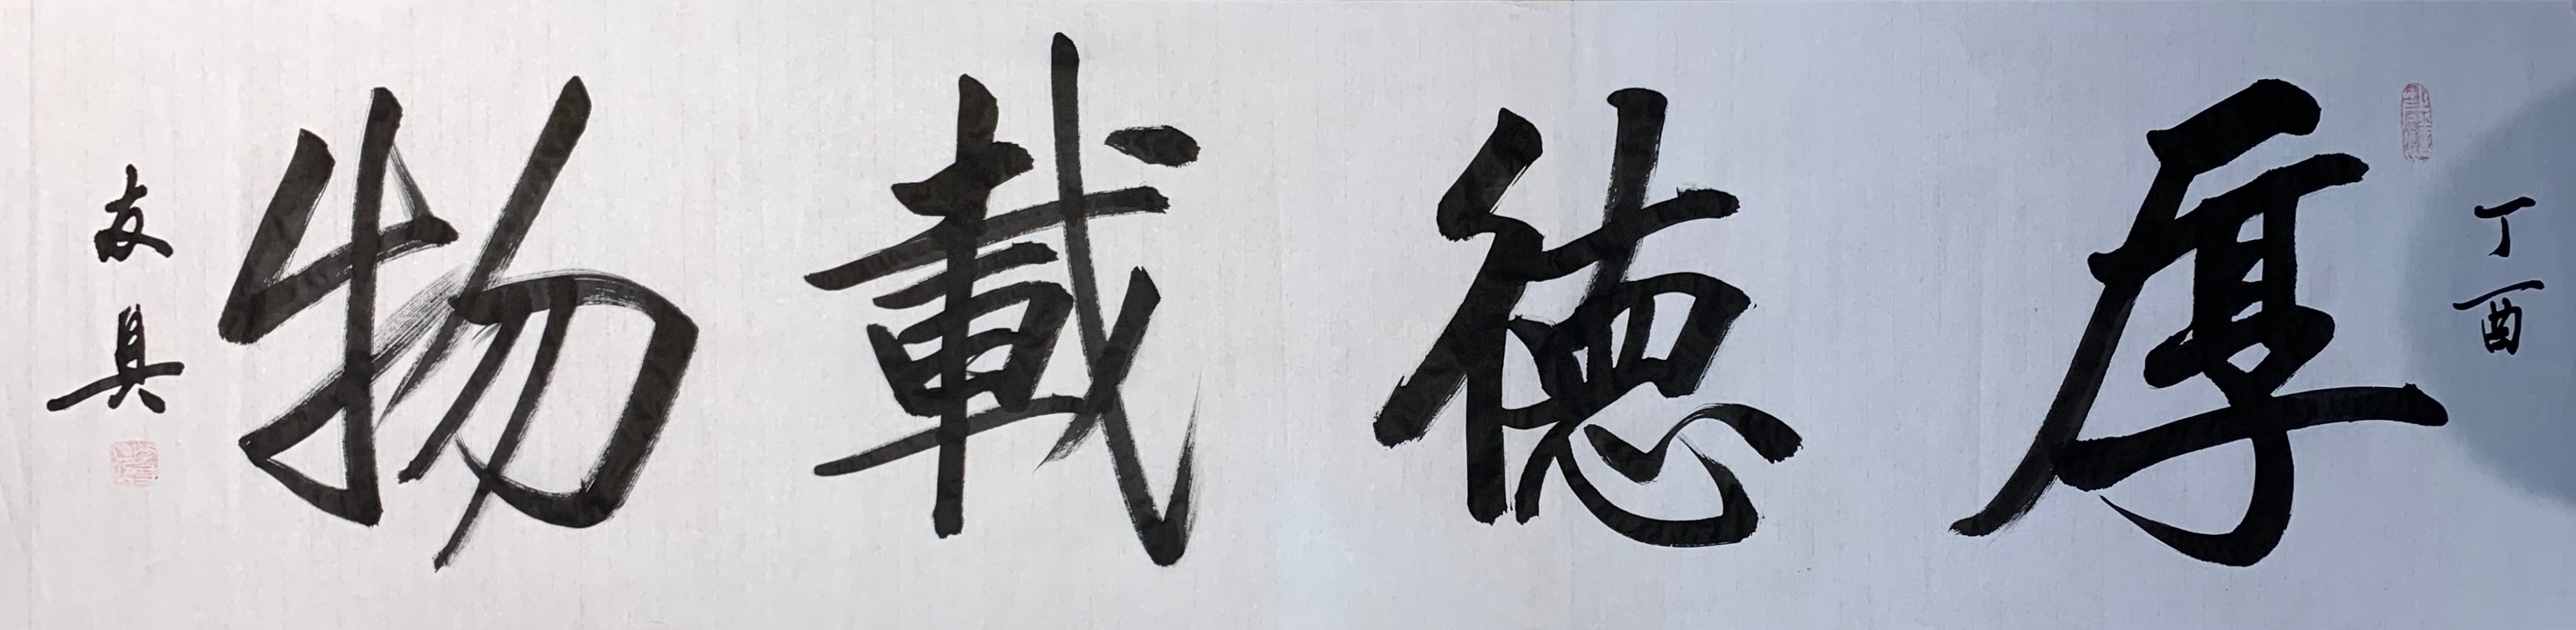 丁酉
厚德載物
友具